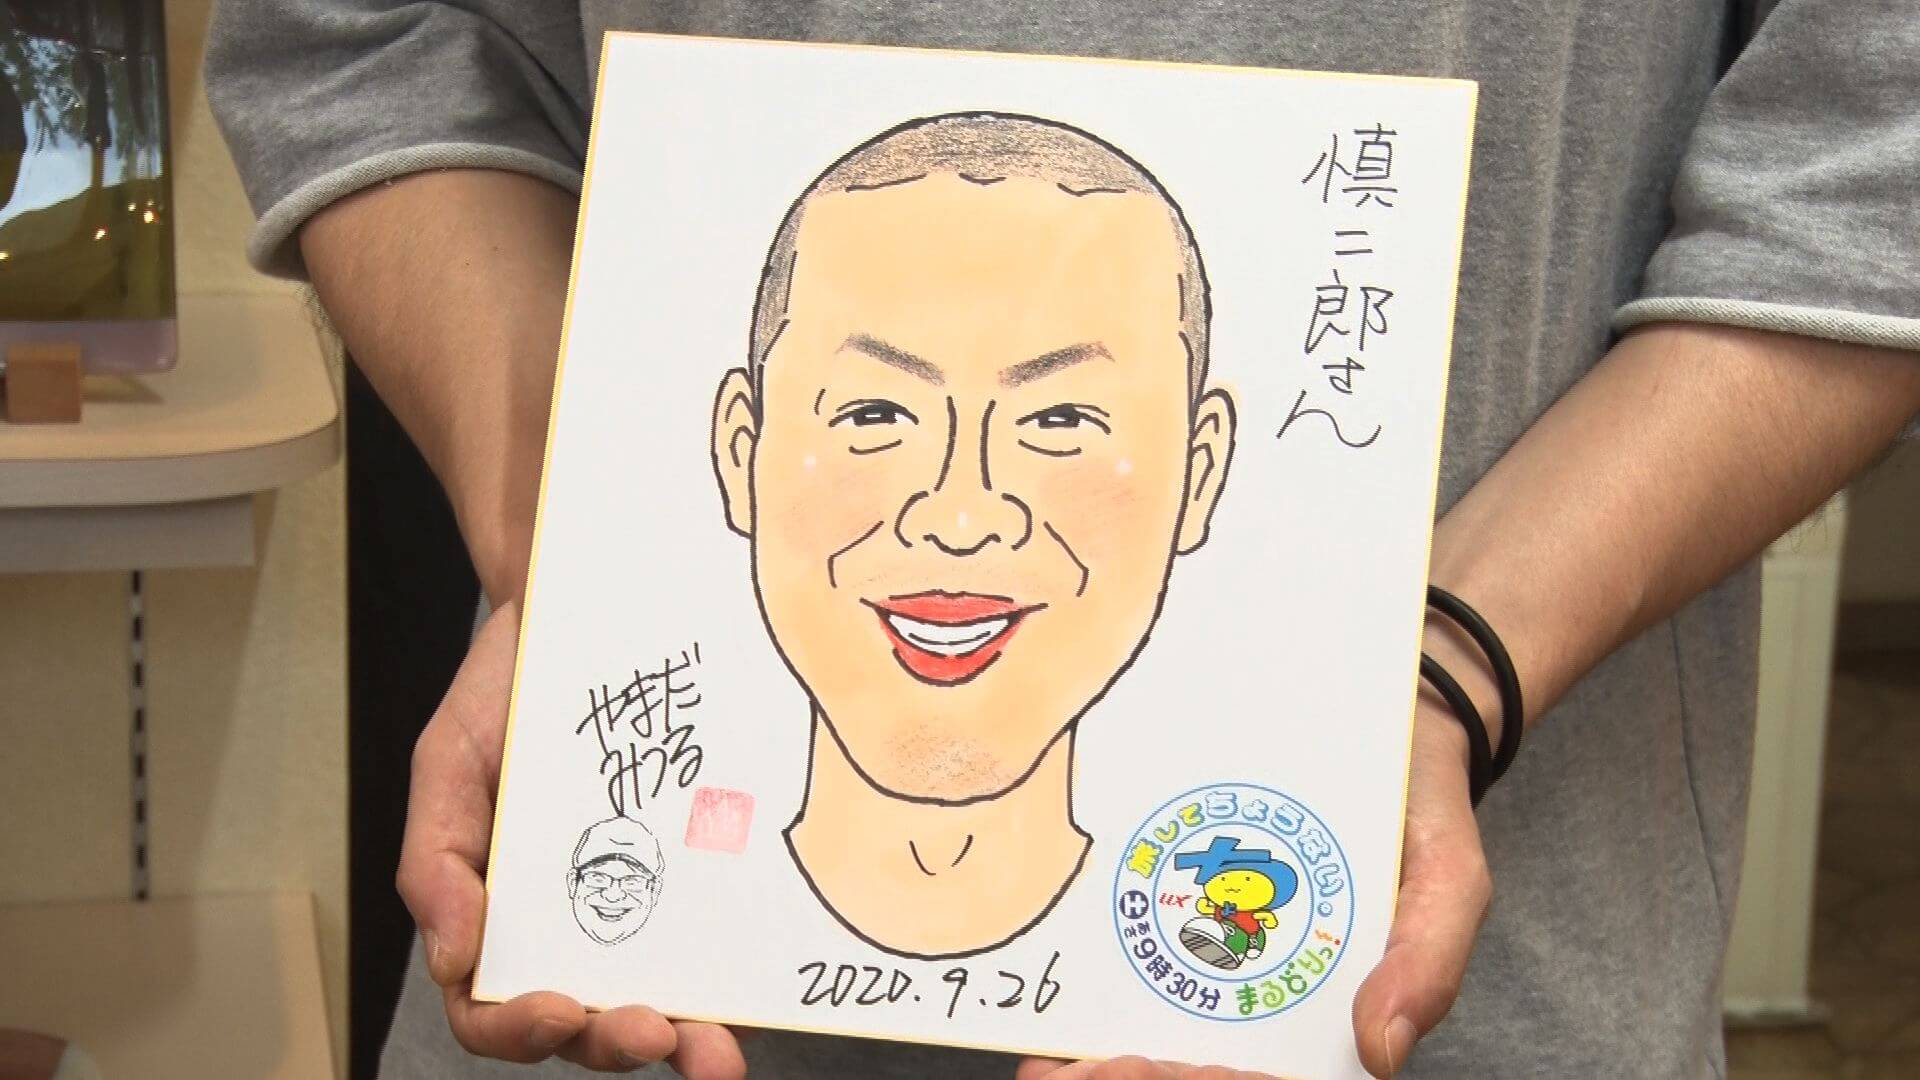 慎二郎さん
やまだ
みつる
2020.9.26
旅してちょうない。
まるどりっ!
UX
土
あさ
9時30分